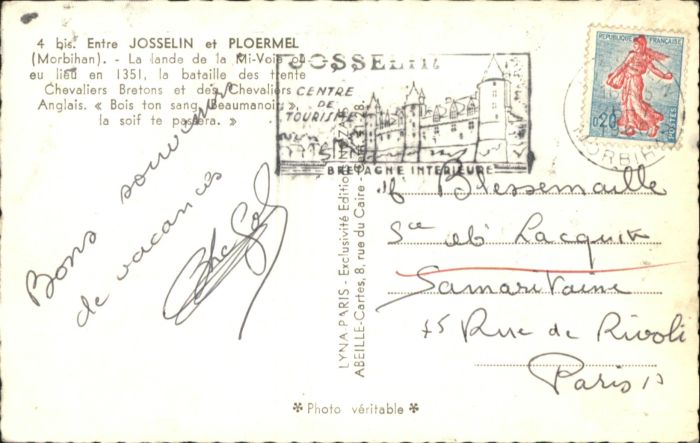 4 bis. Entre JOSSELIN et PLOERMEL
(Morbihan). - La lande de la Mi-Voie où
eu lieu en 1351, la bataille des trente
Chevaliers Bretons et des Chevaliers
Anglais. « Bois ton sang Beaumanoir,
la soif te passera. »
JOSSELIN
CENTRE
DE
TOURISME
BRETAGNE INTERIEURE
REPUBLIQUE FRANÇAISE
0,20
POSTES
MORBIHAN
Bons souvenirs
de vacances
LYNA-PARIS - Exclusivité Edition
ABEILLE-Cartes, 8, rue du Caire -
Blessemaille
Sce
Lacquit
Samaritaine
75 Rue de Rivoli
Paris
✻ Photo véritable ✻